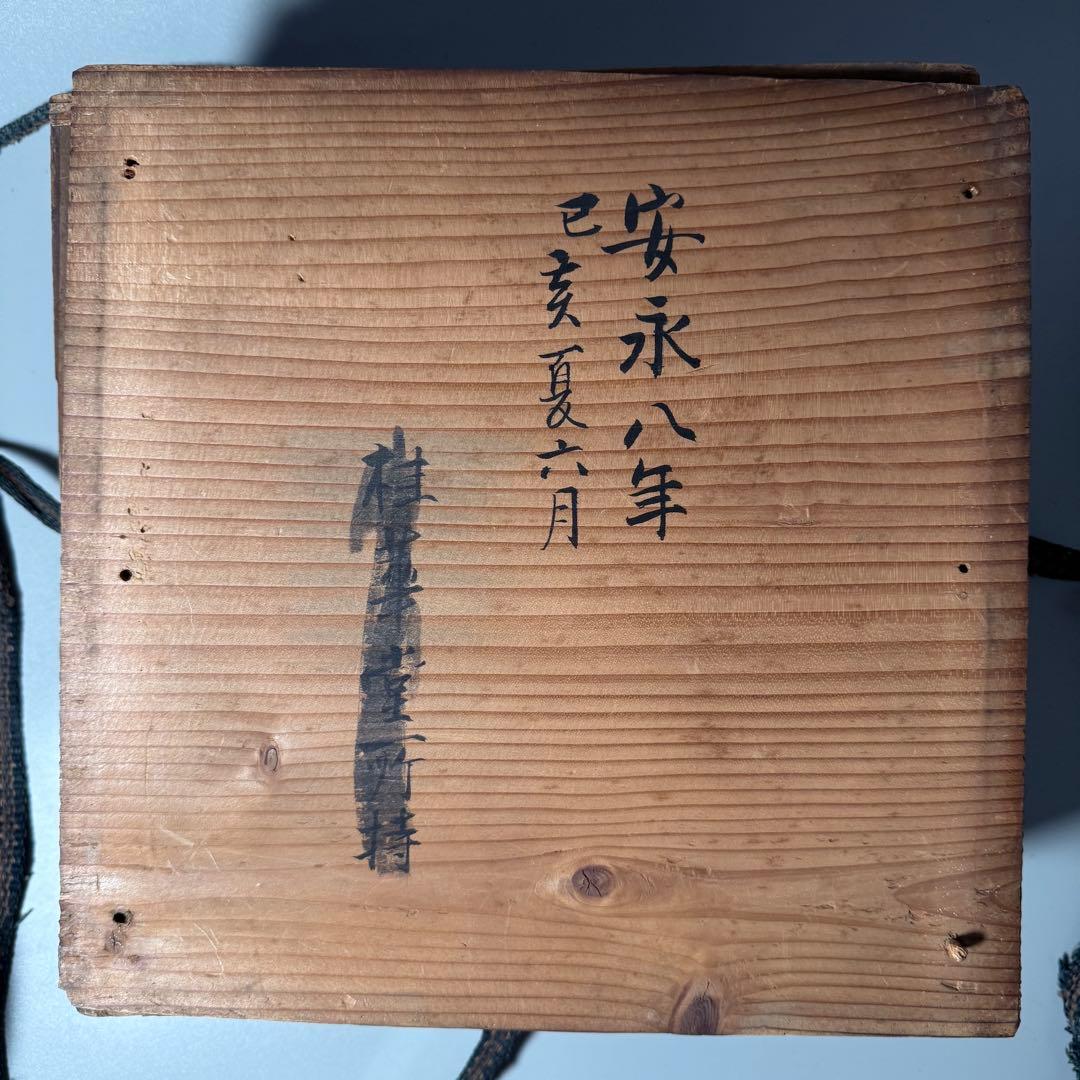 安永八年
己亥夏六月
桂 堂所持